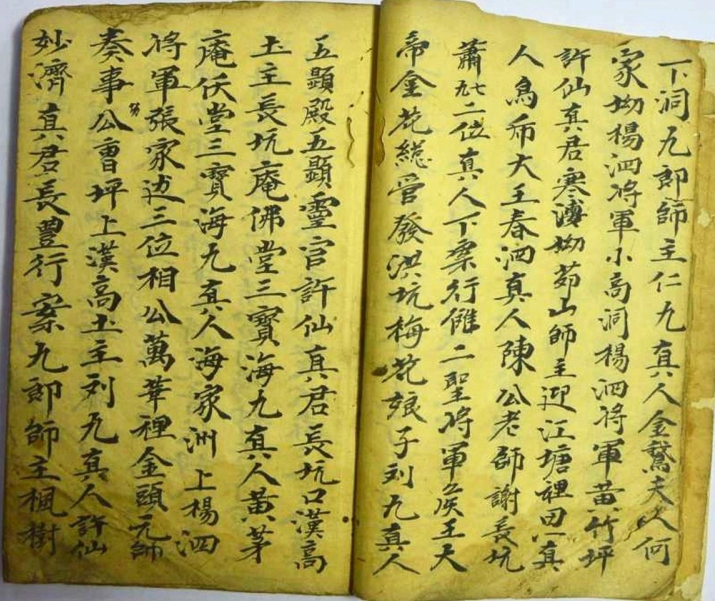 下洞九郎師主仁九真人金鵞夫人何
家坳楊泗將軍小高洞楊泗將軍黃竹坪
許仙真君寒婆坳茆山師主迎江塘裡田公真
人烏帝大王春泗真人陳公老師謝長坑
蕭九七二位真人下案行儺二聖將軍侯王大
帝金花總管發洪坑梅花娘子刘九真人
五顯殿五顯靈官許仙真君長坑口漢高
土主長坑庵佛堂三寶海九真人黃茅
庵伏堂三寶海九真人海家洲上楊泗
將軍張家边三位相公萬葦裡金頭元帥
奏事公曹坪上漢高土主刘九真人許仙
妙濟真君長豊行案九郎師主楓樹